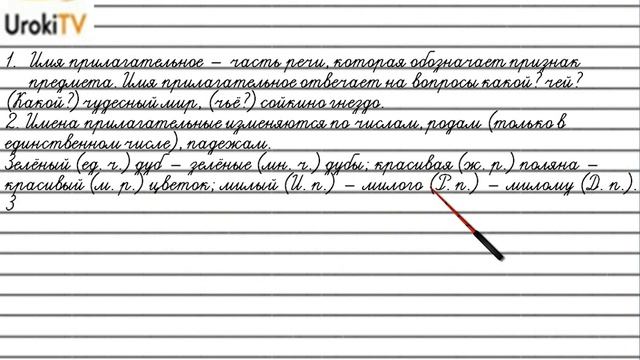 UrokiTV
1. Имя прилагательное – часть речи, которая обозначает признак
предмета. Имя прилагательное отвечает на вопросы какой? чей?
(Какой?) чудесный мир, (чьё?) сойкино гнездо.
2. Имена прилагательные изменяются по числам, родам (только в
единственном числе), падежам.
Зелёный (ед. ч.) дуб – зелёные (мн. ч.) дубы; красивая (ж. р.) поляна –
красивый (м. р.) цветок; милый (И. п.) – милого (Р. п.) – милому (Д. п.).
3